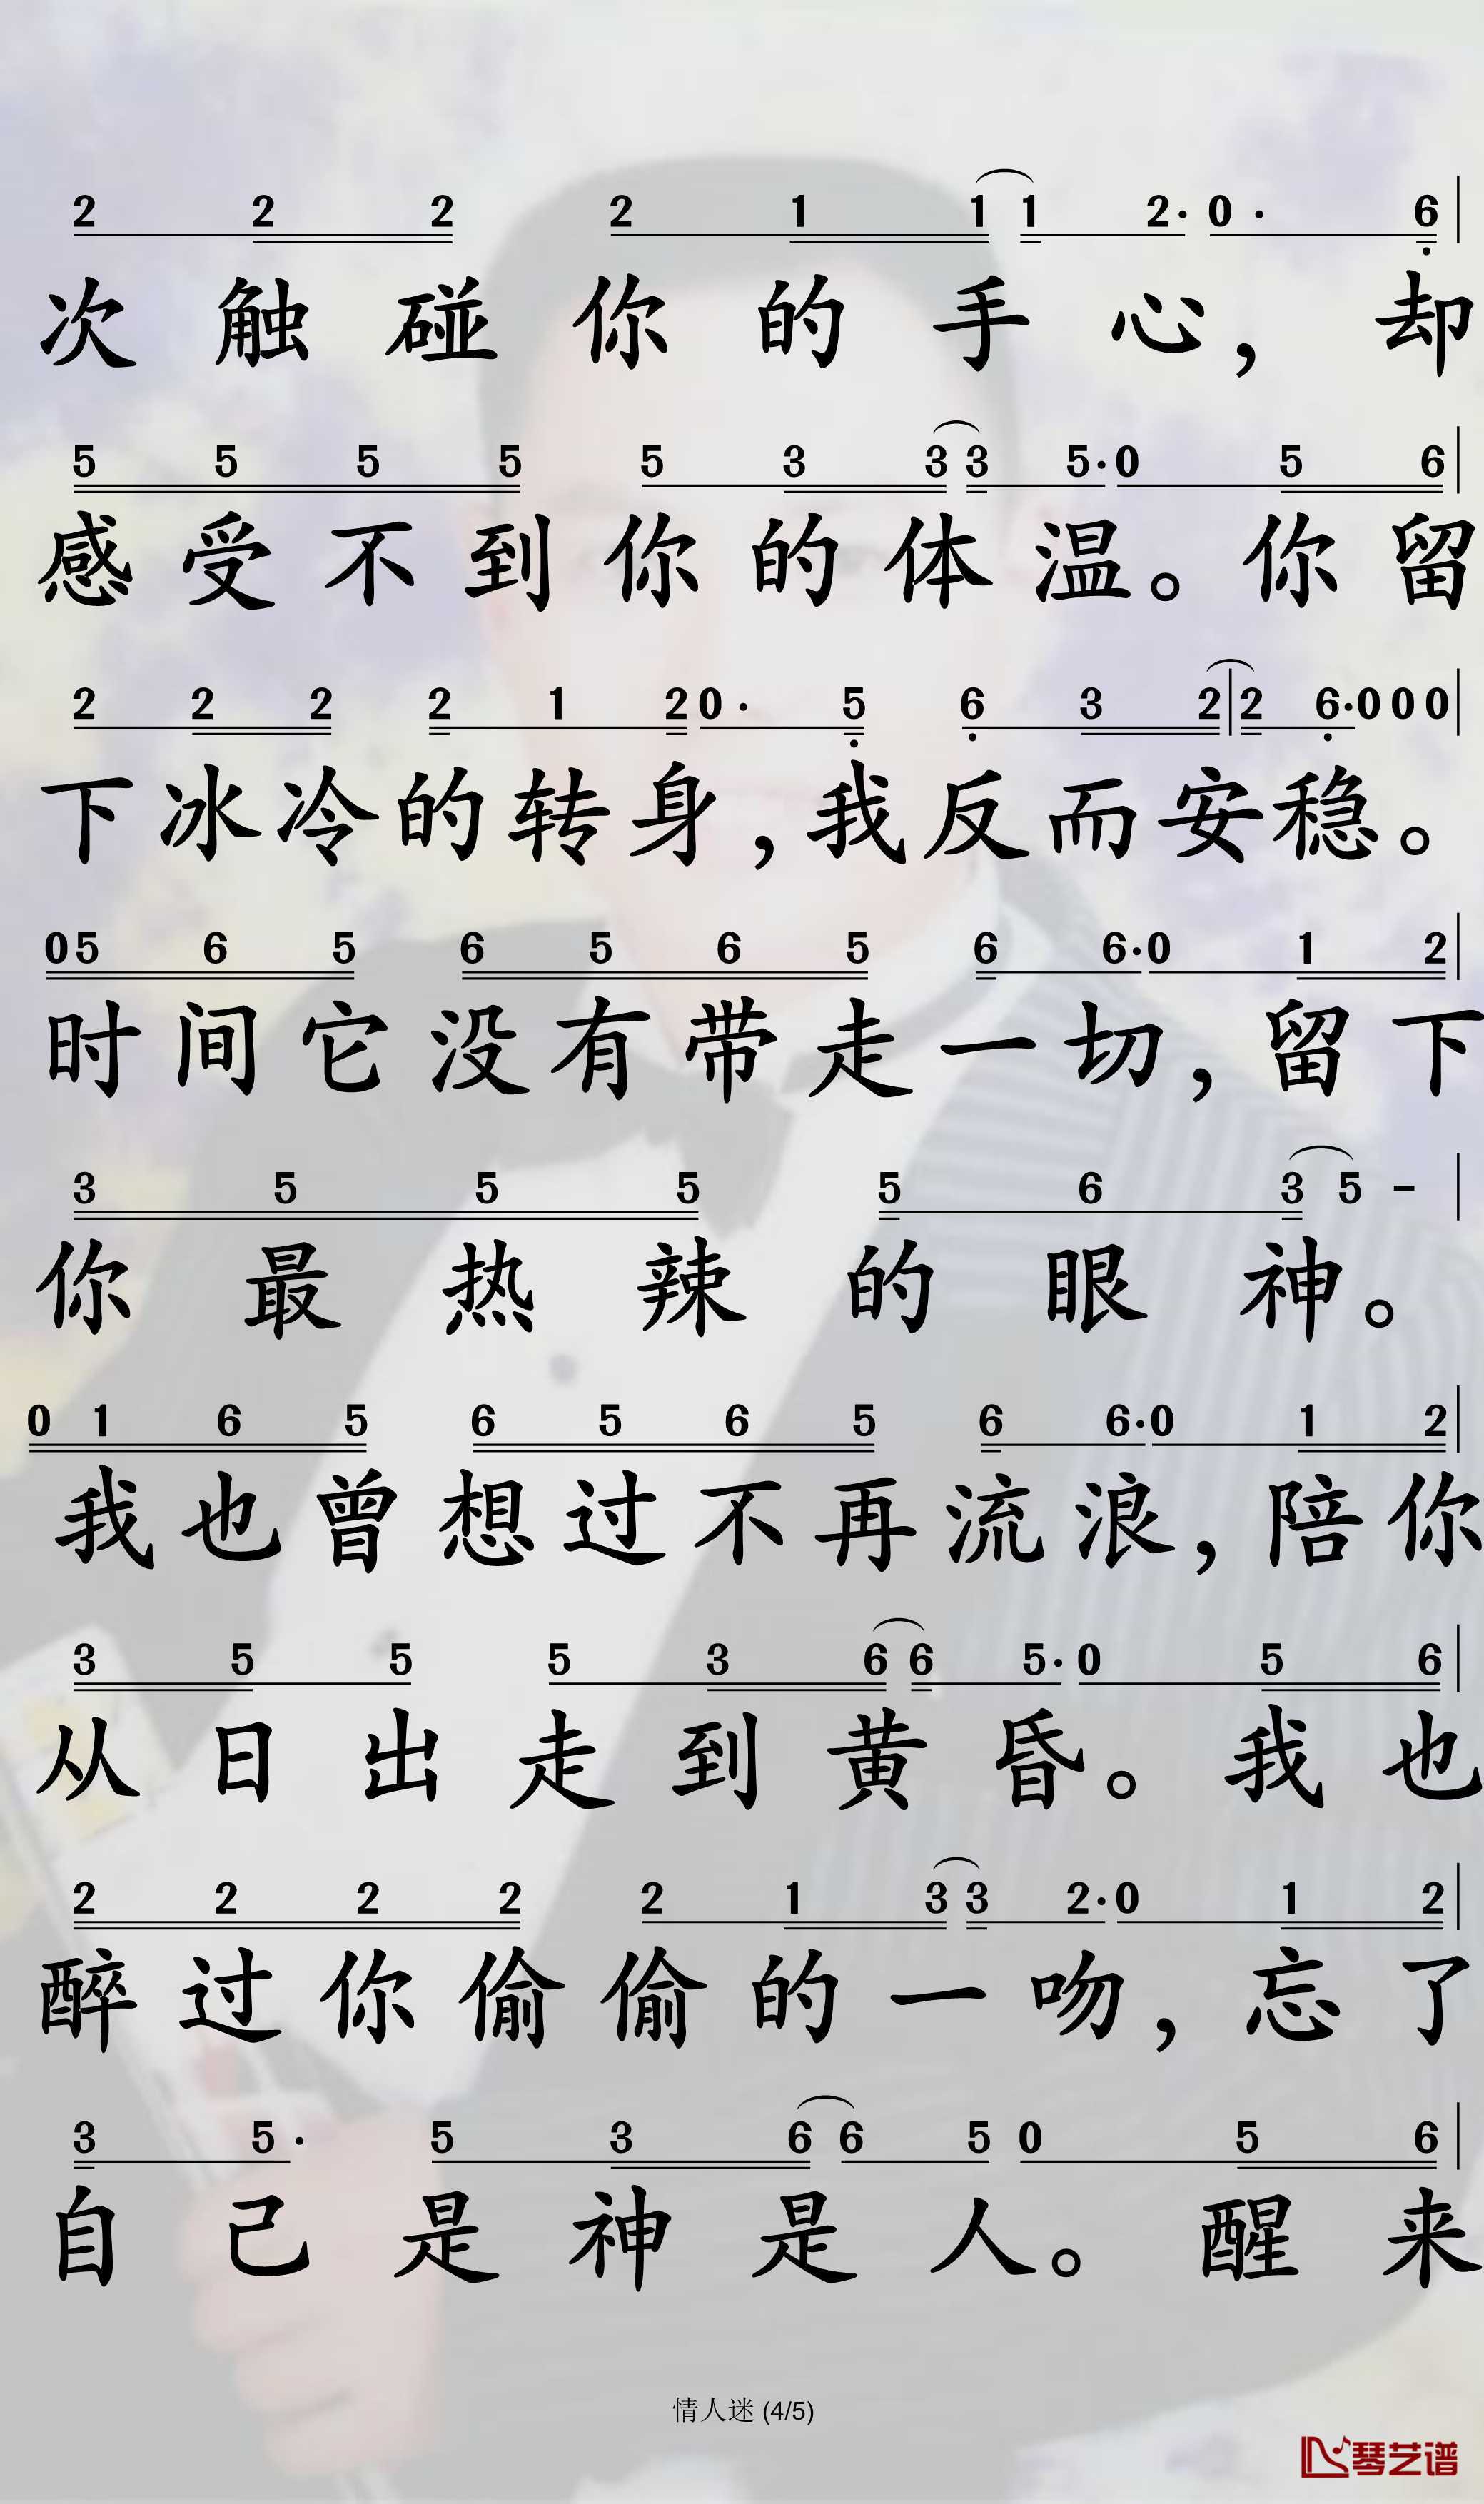 2 2 2 2 1 1 1 2· 0· 6
次触碰你的手心，却
5 5 5 5 5 3 3 3 5·0 5 6
感受不到你的体温。你留
2 2 2 2 1 2 0· 5 6 3 2|2 6·0 0 0
下冰冷的转身，我反而安稳。
0 5 6 5 6 5 6 5 6 6·0 1 2
时间它没有带走一切，留下
3 5 5 5 5 6 3 5 -
你最热辣的眼神。
0 1 6 5 6 5 6 5 6 6·0 1 2
我也曾想过不再流浪，陪你
3 5 5 5 3 6 6 5·0 5 6
从日出走到黄昏。我也
2 2 2 2 2 1 3 3 2·0 1 2
醉过你偷偷的一吻，忘了
3 5· 5 3 6 6 5 0 5 6
自己是神是人。醒来
情人迷 (4/5)
琴艺谱